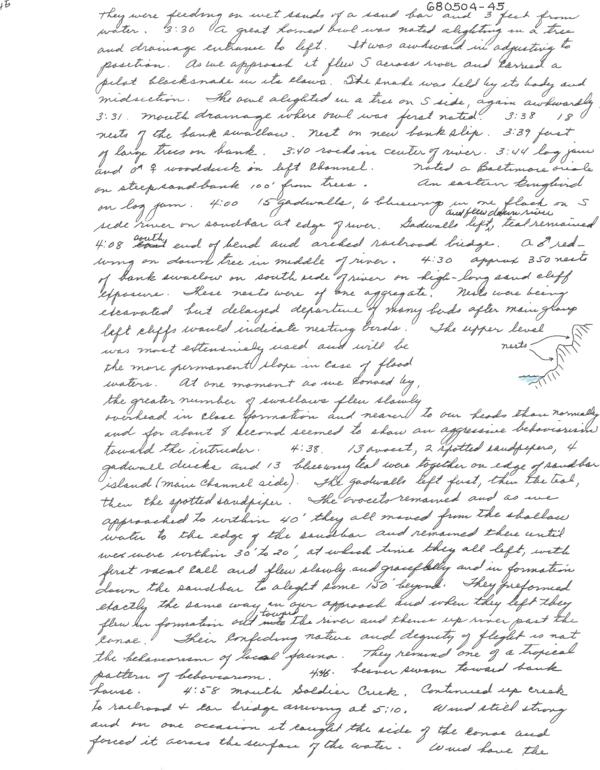 45
680504-45
They were feeding on wet sands of a sand bar and 3 feet from
water. 3:30 A great horned owl was noted alighting in a tree
and drainage entrance to left. It was awkward in adjusting to
position. As we approach it flew S across river and carried a
pilot blacksnake in its claws. The snake was held by its body and
midsection. The owl alighted in a tree on S side, again awkwardly.
3:31. Mouth drainage where owl was first noted. 3:38 18
nests of the bank swallow. Nest on new bank slip. 3:39 foot
of large trees on bank. 3:40 rocks in center of river. 3:44 log jam
and ♂ ♀ woodduck on left channel. Noted a Baltimore oriole
on steep sand bank 100' from trees. An eastern kingbird
on log jam. 4:00 15 gadwalls, 6 bluewing in one flock on S
side river on sandbar at edge of river. Gadwalls left, and flew down river teal remained
4:08 south end of bend and arched railroad bridge. A ♂ red-
wing on down tree in middle of river. 4:30 approx 350 nests
of bank swallow on south side of river on high-long sand cliff
exposure. These nests were of one aggregate. Nests were being
excavated but delayed departure of many birds after main group
left cliffs would indicate nesting birds. The upper level
was most extensively used and will be
nests
the more permanent slope in case of flood
waters. At one moment as we canoed by,
the greater number of swallows flew slowly
overhead in close formation and nearer to our heads than normally
and for about 8 second seemed to show an aggressive behaviorism
toward the intruder. 4:38. 13 avocet, 2 spotted sandpipers, 4
gadwall ducks and 13 bluewing teal were together on edge of sandbar
island (main channel side). The gadwalls left first, then the teal,
then the spotted sandpiper. The avocets remained and as we
approached to within 40' they all moved from the shallow
water to the edge of the sandbar and remained there until
we were within 30' to 20', at which time they all left, with
first vocal call and flew slowly and gracefully and in formation
down the sandbar to alight some 150' beyond. They preformed
exactly the same way in our approach and when they left they
flew in formation out toward the river and thence up river past the
canoe. Their confiding nature and dignity of flight is not
the behaviorism of local fauna. They remind one of a tropical
pattern of behaviorism. 4:45. beaver swam toward bank
house. 4:58 mouth Soldier Creek. Continued up creek
to railroad + car bridge arriving at 5:10. Wind still strong
and on one occasion it caught the side of the canoe and
forced it across the surface of the water. Wind have the